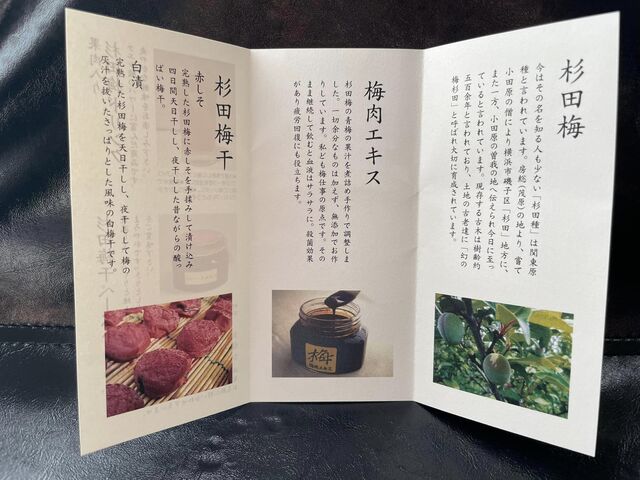 杉田梅
今はその名を知る人も少ない「杉田種」は関東原
種と言われています。房総(茂原)の地より、嘗て
小田原の僧により横浜市磯子区「杉田」地方に、
また一方、小田原の曽我の地へ伝えられ今日に至っ
ていると言われています。現存する古木は樹齢約
五百余年と言われており、土地の古老達に「幻の
梅杉田」と呼ばれ大切に育成されています。
梅肉エキス
杉田梅の青梅の果汁を煮詰め手作りで調整しま
した。一切余分なものは加えず、無添加でお作
りしています。私ども梅仕事の原点です。その
まま継続して飲むと血液はサラサラに。殺菌効果
があり疲労回復にも役立ちます。
梅
梅肉エキス
杉田梅干
赤しそ
完熟した杉田梅に赤しそを手揉みして漬け込み
四日間天日干しし、夜干しした昔ながらの酸っ
ぱい梅干。
白漬
完熟した杉田梅を天日干しし、夜干しして梅の
灰汁を抜いたさっぱりとした風味の白梅干です。